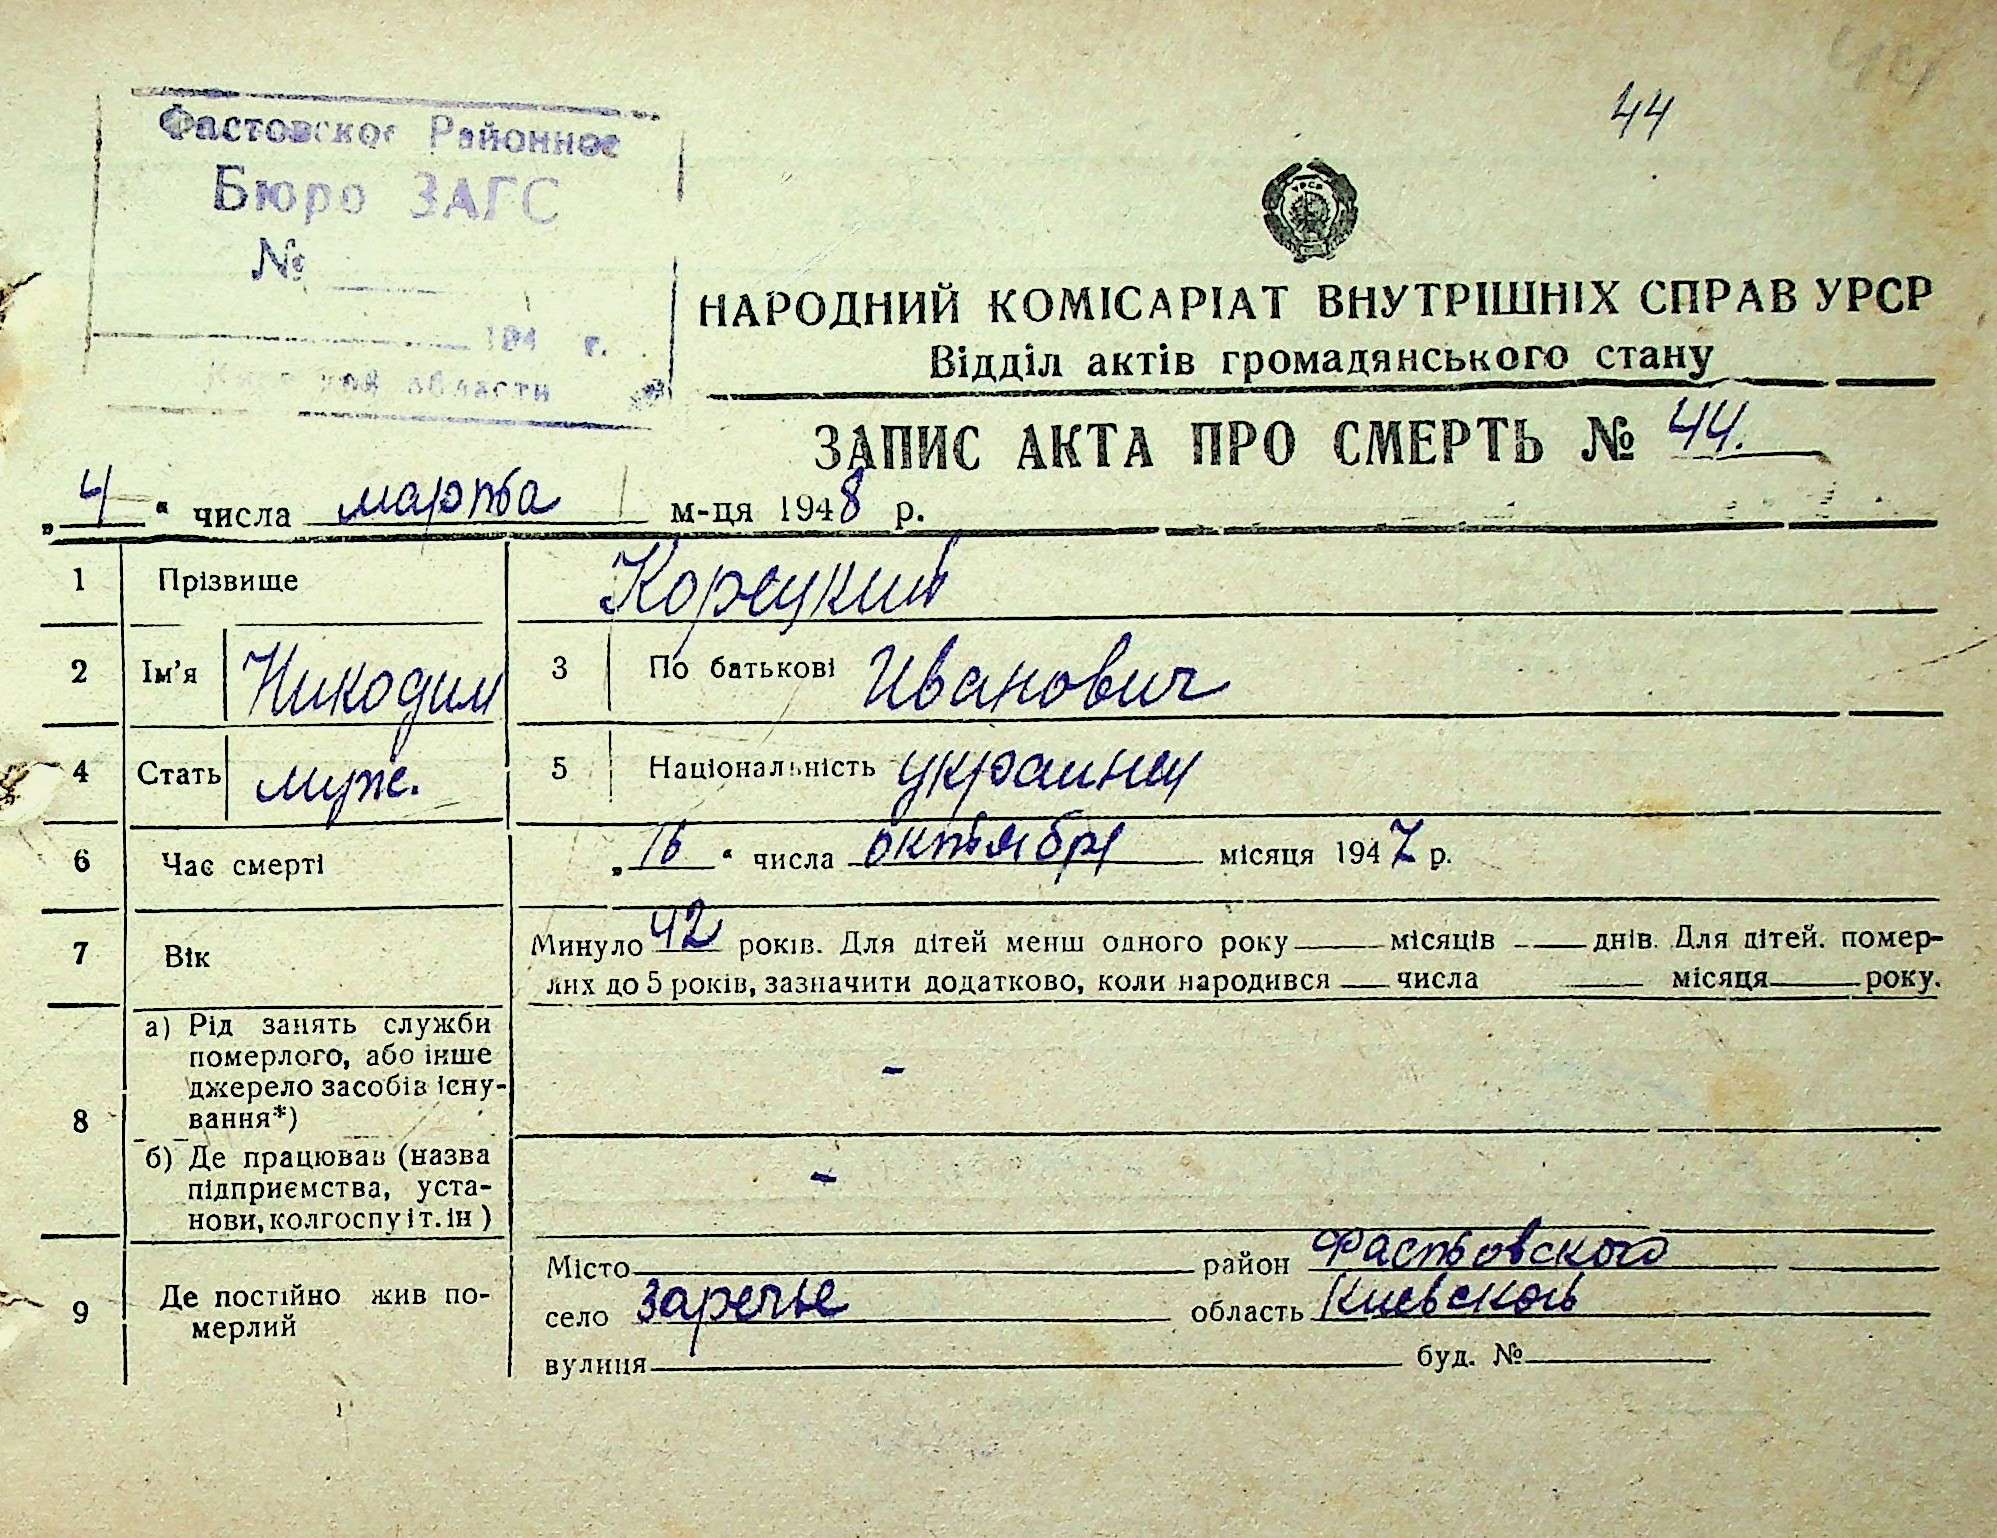 44
Фастовское Районное
Бюро ЗАГС
№
194 г.
области
УРСР
НАРОДНИЙ КОМІСАРІАТ ВНУТРІШНІХ СПРАВ УРСР
Відділ актів громадянського стану
ЗАПИС АКТА ПРО СМЕРТЬ № 44.
„4“ числа марта м-ця 1948 р.
1 Прізвище Корецкий
2 Ім'я Никодим 3 По батькові Иванович
4 Стать муж. 5 Національність украинец
6 Час смерті „16“ числа октября місяця 1947 р.
7 Вік Минуло 42 років. Для дітей менш одного року — місяців — днів. Для дітей. помер-
лих до 5 років, зазначити додатково, коли народився — числа — місяця — року.
8 а) Рід занять служби
померлого, або інше
джерело засобів існу-
вання*) -
б) Де працював (назва
підприємства, уста-
нови, колгоспу і т. ін) -
9 Де постійно жив по-
мерлий
Місто район Фастовского
село Заречье область Киевской
вулиця буд. №